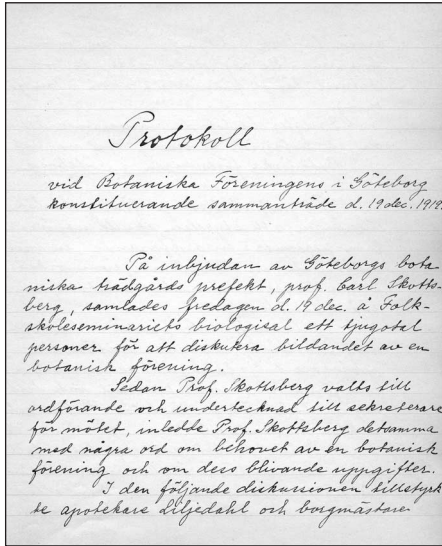 Protokoll
vid Botaniska Föreningens i Göteborg
konstituerande sammanträde d. 19 dec. 1919.
På inbjudan av Göteborgs bota-
niska trädgårds prefekt, prof. Carl Skotts-
berg, samlades fredagen d. 19 dec. å Folk-
skoleseminariets biologisal ett tjugotal
personer för att diskutera bildandet av en
botanisk förening.
Sedan Prof. Skottsberg valts till
ordförande och undertecknad till sekreterare
för mötet, inledde Prof. Skottsberg detsamma
med några ord om behovet av en botanisk
förening och om dess blivande uppgifter.
I den följande diskussionen tillstyrk-
te apotekare Liljedahl och borgmästare